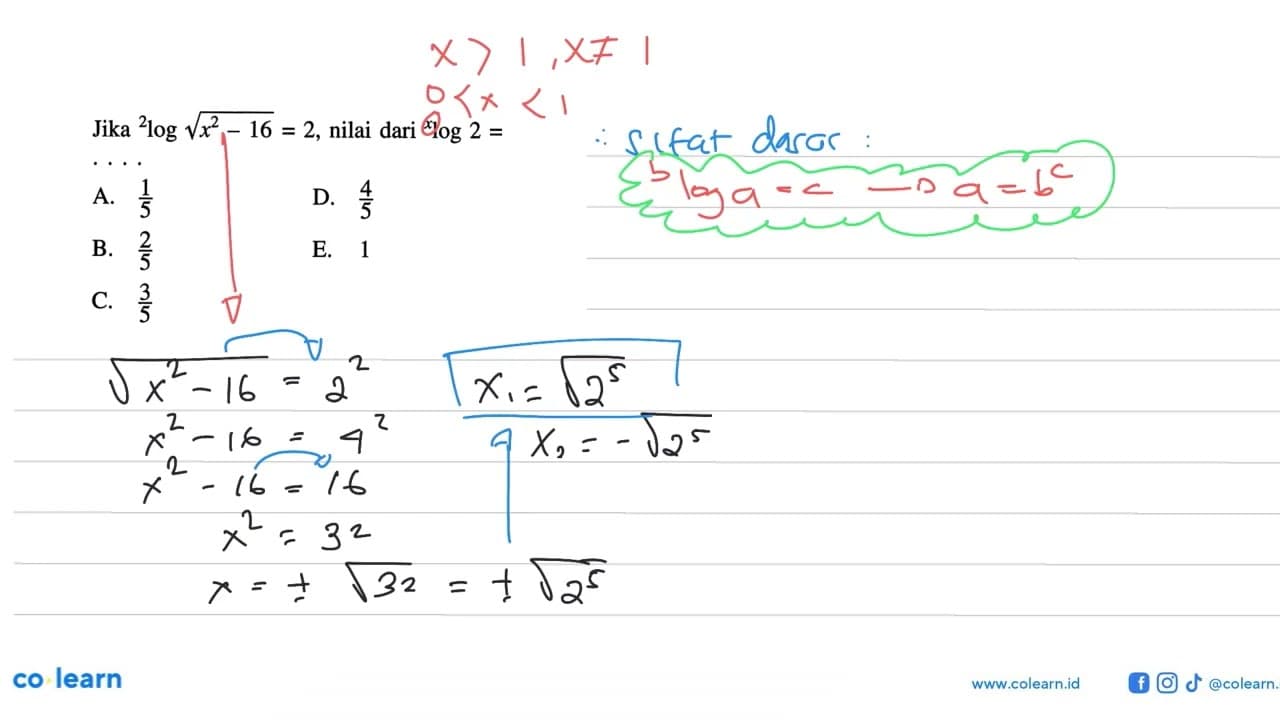 x > 1, x ≠ 1
0 < x < 1
Jika ²log √(x² – 16) = 2, nilai dari ˣlog 2 =
. . . .
A. 1/5
D. 4/5
B. 2/5
E. 1
C. 3/5
∴ sifat dasar :
ᵇlog a = c → a = bᶜ
√(x² – 16) = 2²
x² – 16 = 4²
x² – 16 = 16
x² = 32
x = ± √32 = ± √2⁵
x₁ = √2⁵
x₂ = – √2⁵
co·learn
www.colearn.id
@colearn.